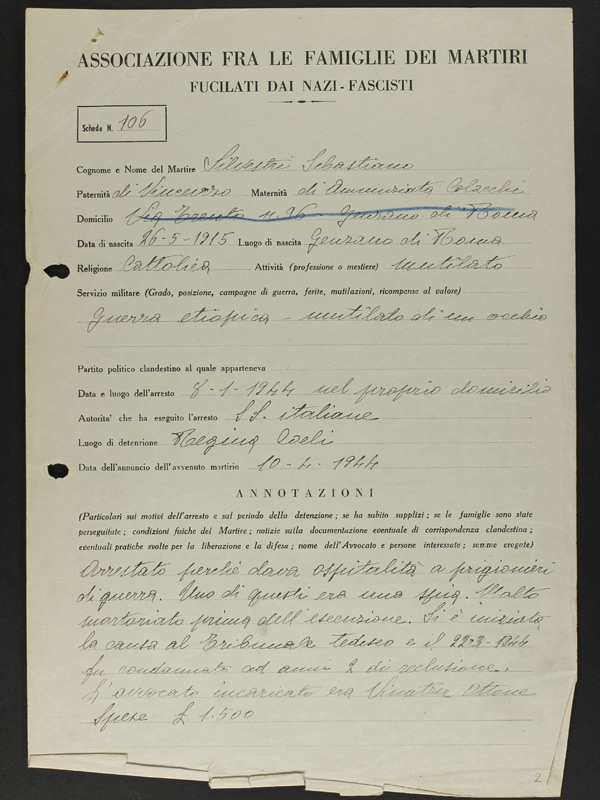 ASSOCIAZIONE FRA LE FAMIGLIE DEI MARTIRI
FUCILATI DAI NAZI-FASCISTI
Scheda N. 106
Cognome e Nome del Martire Silvestri Sebastiano
Paternità di Vincenzo Maternità di Annunziata Colacchi
Domicilio Via Trento n. 26 - Genzano di Roma
Data di nascita 26-5-1915 Luogo di nascita Genzano di Roma
Religione Cattolica Attività (professione o mestiere) mutilato
Servizio militare (Grado, posizione, campagne di guerra, ferite, mutilazioni, ricompense al valore)
Guerra etiopica - mutilato di un occhio
Partito politico clandestino al quale apparteneva
Data e luogo dell'arresto 8-1-1944 nel proprio domicilio
Autorita' che ha eseguito l'arresto SS. italiane
Luogo di detenzione Regina Coeli
Data dell'annuncio dell'avvenuto martirio 10-4-1944
ANNOTAZIONI
(Particolari sui motivi dell'arresto e sul periodo della detenzione; se ha subito supplizi; se le famiglie sono state
perseguitate; condizioni fisiche del Martire; notizie sulla documentazione eventuale di corrispondenza clandestina;
eventuali pratiche svolte per la liberazione e la difesa; nome dell'Avvocato e persone interessate; somme erogate)
Arrestato perché dava ospitalità a prigionieri
di guerra. Uno di questi era una spia. Molto
martoriato prima dell'esecuzione. Si è iniziata
la causa al Tribunale tedesco e il 22-3-1944
fu condannato ad anni 2 di reclusione.
L'avvocato incaricato era Ottone
Spese £ 1.500
2